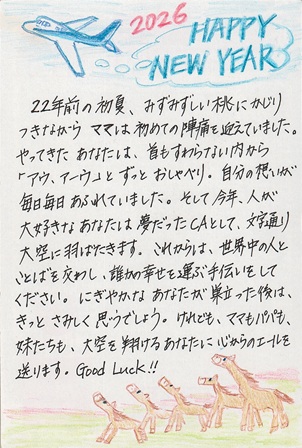 2026
HAPPY
NEW YEAR
22年前の初夏、みずみずしい桃にかじり
つきながら ママは初めての陣痛を迎えていました。
やってきた あなたは、首もすわらない内から
「アウ、アーウ」と ずっと おしゃべり。自分の想いが
毎日毎日 あふれていました。そして今年、人が
大好きな あなたは 夢だったCAとして、文字通り
大空に羽ばたきます。これからは、世界中の人と
ことばを交わし、誰かの幸せを運ぶ手伝いをして
ください。にぎやかな あなたが 巣立った後は、
きっと さみしく 思うでしょう。けれども、ママもパパも、
妹たちも、大空を翔けるあなたに 心からのエールを
送ります。Good Luck!!